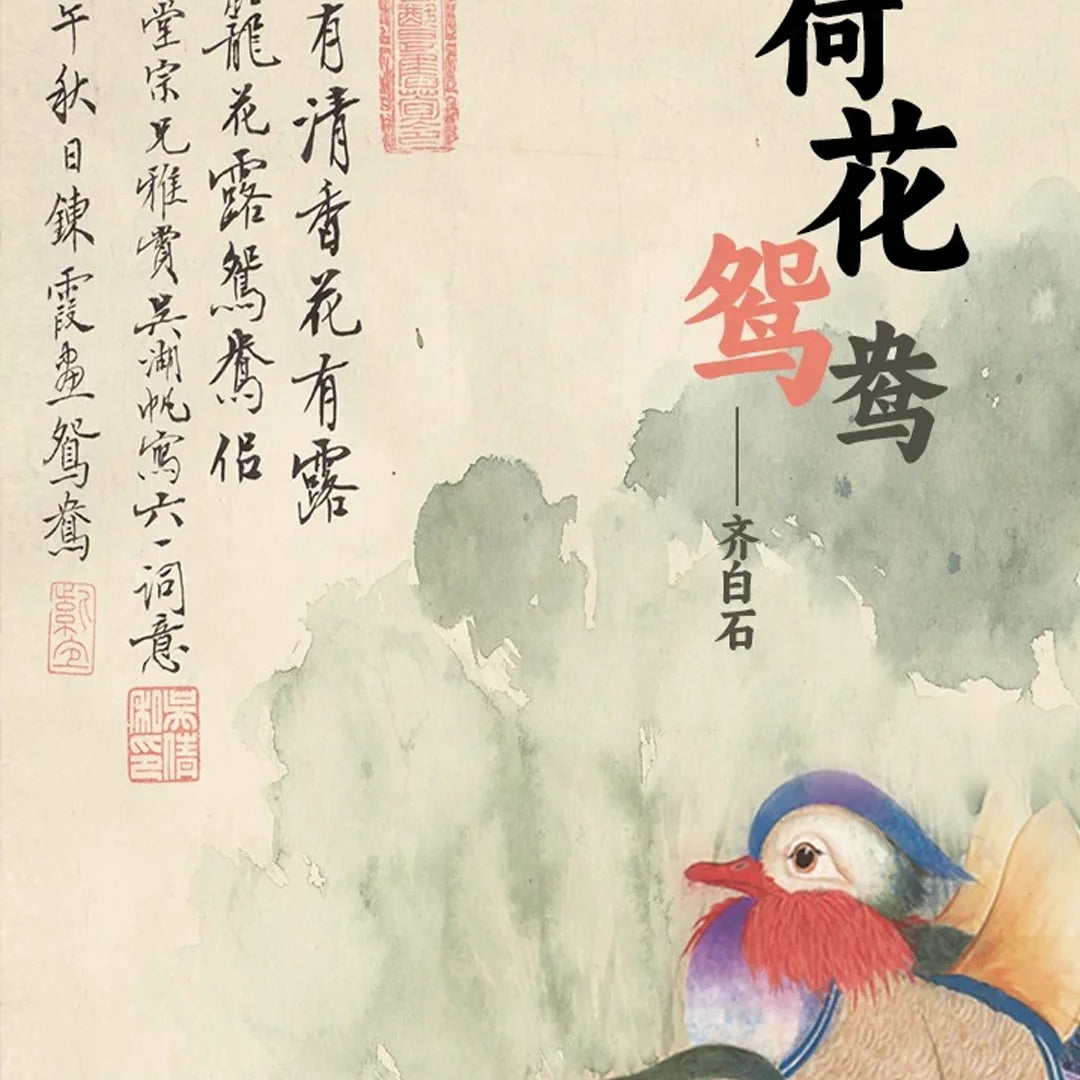 荷花
鸳鸯
——齐白石
有清香花有露
籠花露鴛鴦侣
堂宗兄雅賞吳湖帆寫六一詞意
吳倩私印
午秋日鍊霞畫鴛鴦